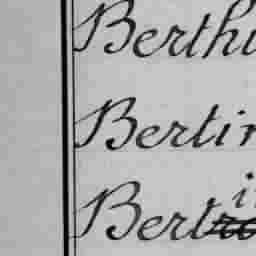 Berthi
Bertin
Bertra